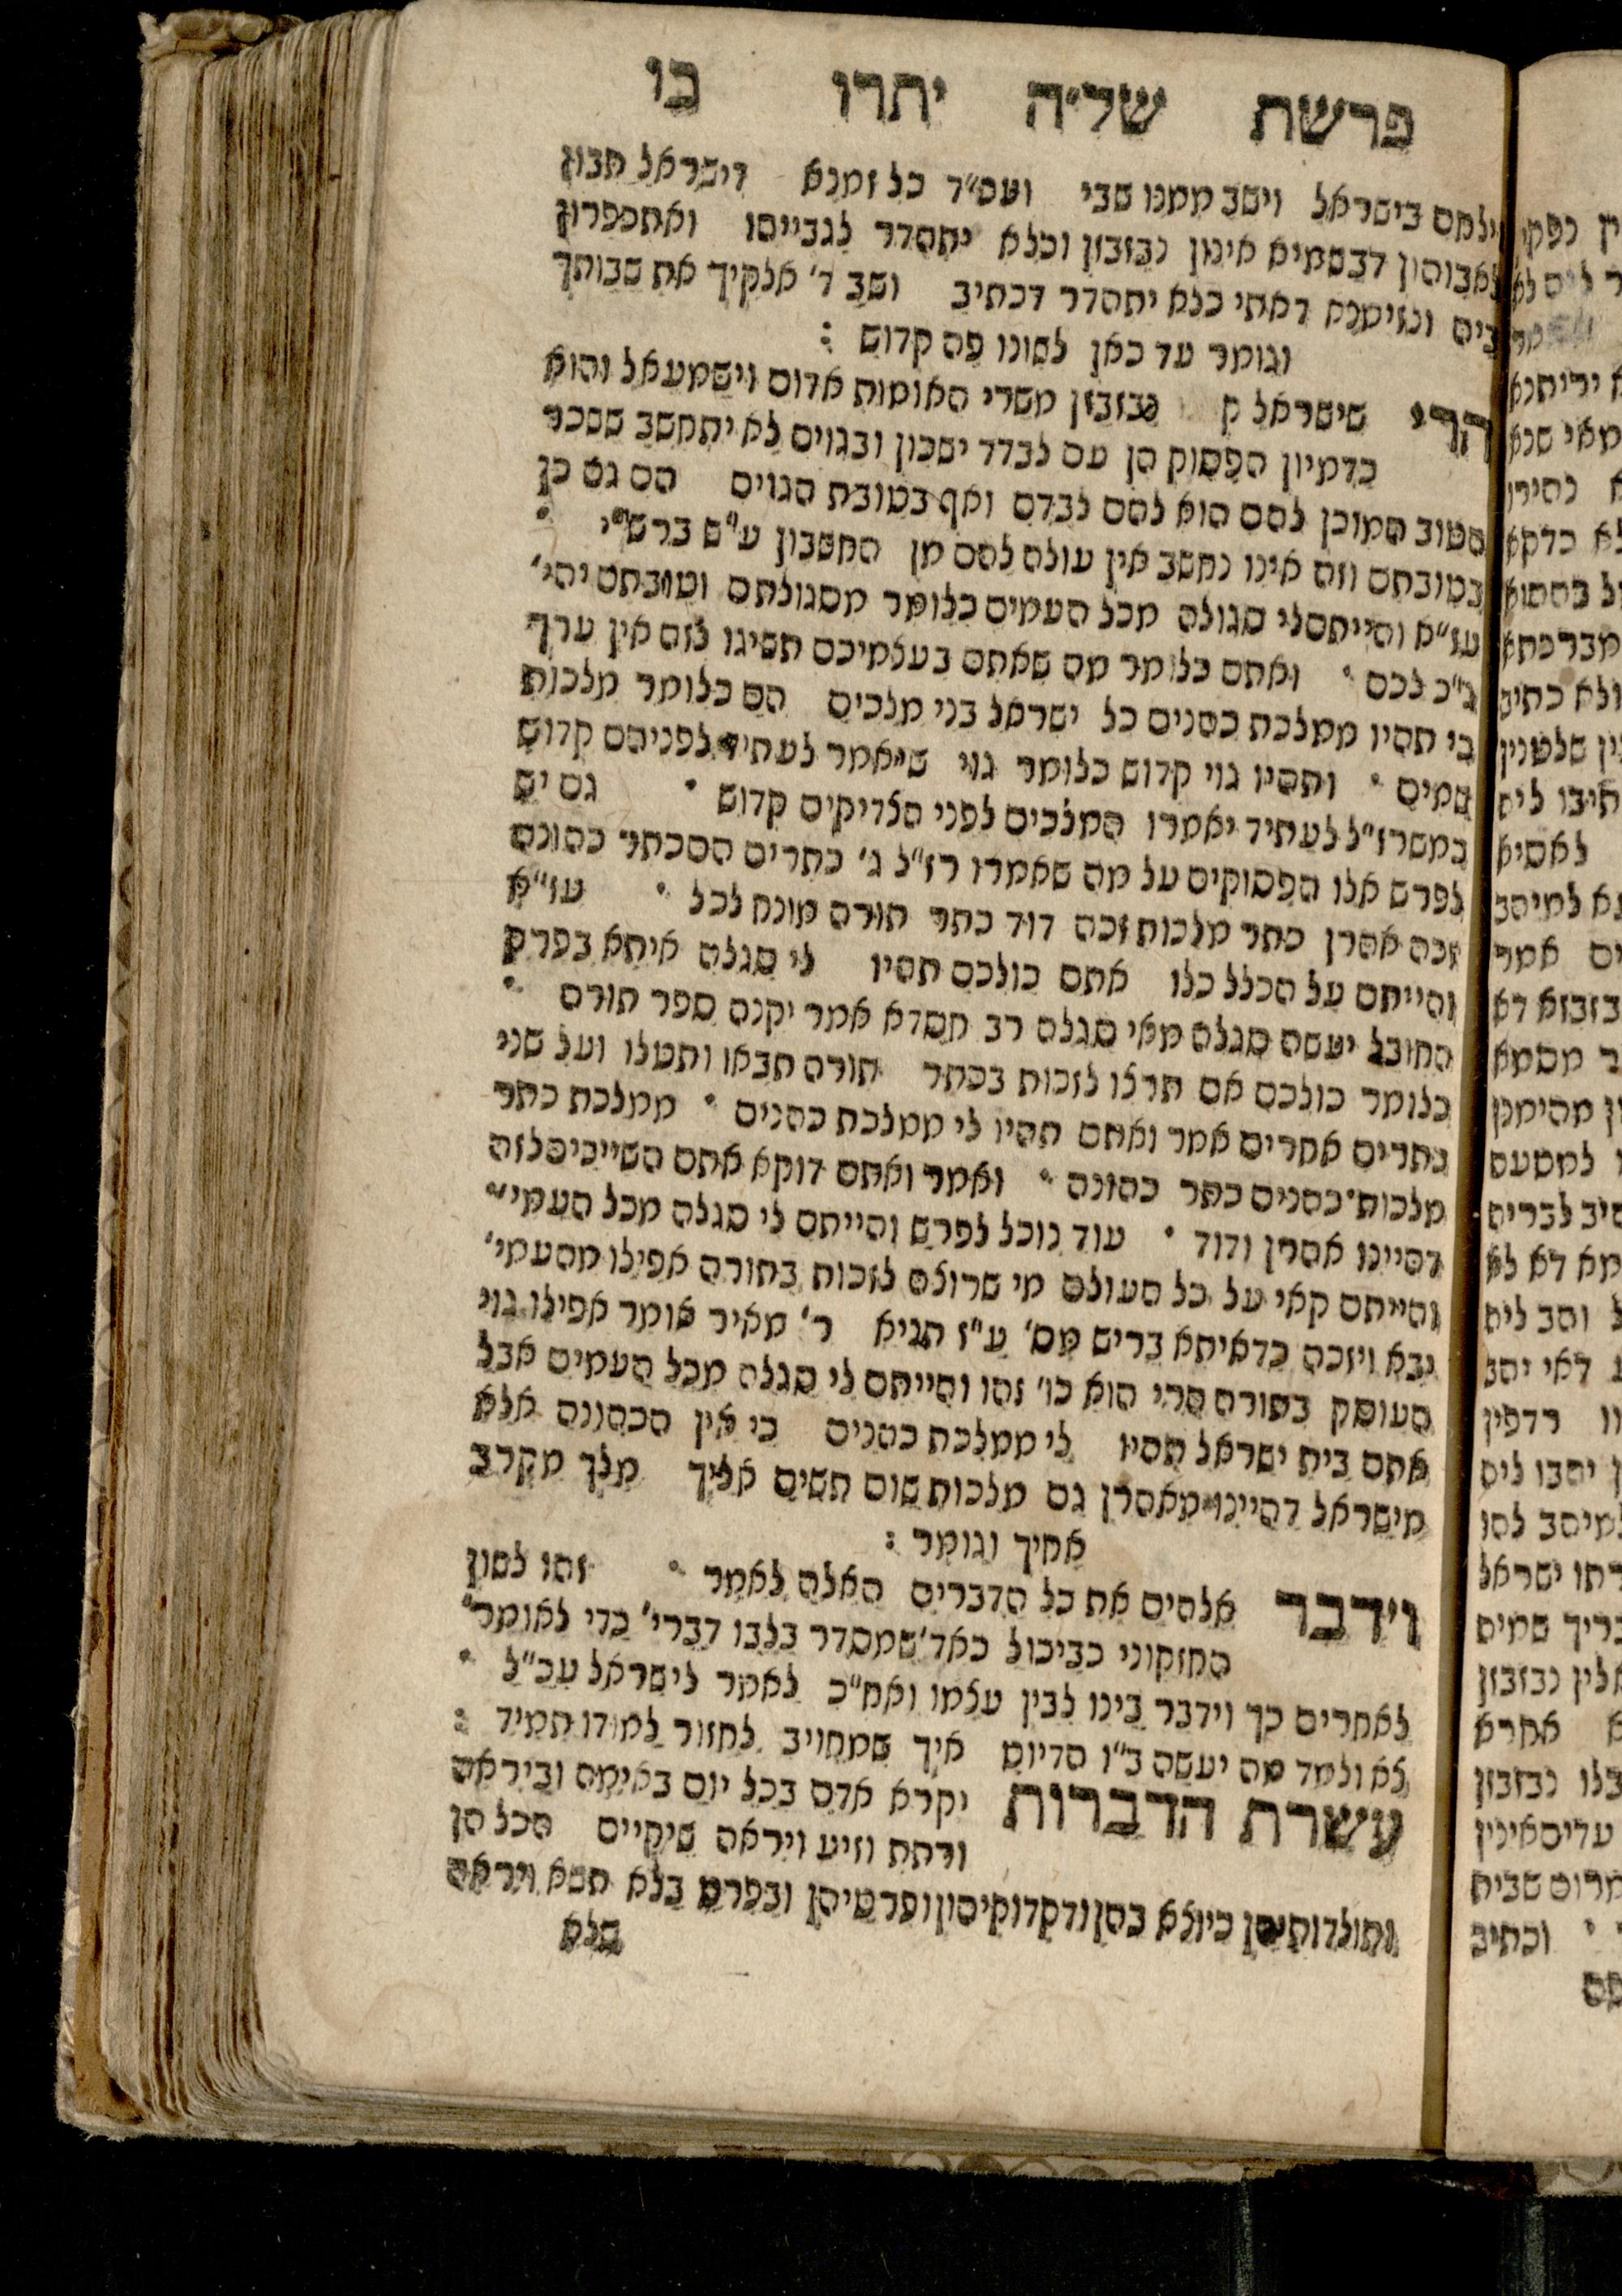 פרשת של״ה יתרו כו
וילחם בישראל וישב ממנו שבי ועס״ד כל זמנא דישראל תבון
לאבוהון דבשמיא אינון נבזבזן וכלא יתהדר לגבייהו ואתכפרון
ביה ובזימנא דאתי כלא יתהדר דכתיב ושב ד׳ אלקיך את שבותך
וגומר עד כאן לשונו פה קדוש :
הרי שישראל נבזבזן משרי האומות אדום וישמעאל והוא
כדמיון הפסוק הן עם לבדד ישכון ובגוים לא יתחשב ששכר
הטוב המוכן להם הוא להם לבדם ואף בטובת הגוים הם גם כן
בטובתם וזה אינו נחשב אין עולה להם מן החשבון ע״ש ברש״י
עז״א והייתם לי סגולה מכל העמים כלומר מסגולתם וטובתם יהי׳
ג״כ לכם ואתם כלומר מה שאתם בעצמיכם תשיגו לזה אין ערך
כי תהיו ממלכת כהנים כל ישראל בני מלכים הם כלומר מלכות
שמים ותהיו גוי קדוש כלומר גוי שיאמר לעתיד לפניהם קדוש
כמשרז״ל לעתיד יאמרו המלכים לפני הצדיקים קדוש גם יש
לפרש אלו הפסוקים על מה שאמרו רז״ל ג׳ כתרים הם כתר כהונה
זכה אהרן כתר מלכות זכה דוד כתר תורה מונח לכל עז״א
והייתם על הכלל כלו אתם כולכם תהיו לי סגלה איתא בפרק
החובל יעשה סגלה מאי סגלה רב חסדא אמר יקנה ספר תורה
כלומר כולכם אם תרצו לזכות בכתר תורה תבאו ותטלו ועל שני
כתרים אחרים אמר ואתם תהיו לי ממלכת כהנים ממלכת כתר
מלכות כהנים כתר כהונה ואמר ואתם דוקא אתם השייכים לזה
דהיינו אהרן ודוד עוד נוכל לפרש והייתם לי סגלה מכל העמי׳
והייתם קאי על כל העולם מי שרוצה לזכות בתורה אפילו מהעמי׳
יבא ויזכה כדאיתא בריש מס׳ ע״ז תניא ר׳ מאיר אומר אפילו גוי
העוסק בתורה הרי הוא כו׳ זהו והייתם לי סגלה מכל העמים אבל
אתם בית ישראל תהיו לי ממלכת כהנים כי אין הכהונה אלא
מישראל דהיינו מאהרן גם מלכות שום תשים אליך מלך מקרב
אחיך וגומר :
וידבר אלהים את כל הדברים האלה לאמר זהו לשון
החזקוני כביכול כאד׳ שמסדר בלבו דברי׳ כדי לאומר׳
לאחרים כך וידבר בינו לבין עצמו ואח״כ לאמר לישראל עכ״ל
צא ולמד מה יעשה ב״ו הדיוט איך שמחויב לחזור למודו תמיד :
עשרת הדברות יקרא אדם בכל יום באימה וביראה
ורתת וזיע ויראה שיקיים הכל הן
ותולדותיהן כיוצא בהן ודקדוקיהון ופרטיהן ובפרט בלא חטא ויראה
בלא